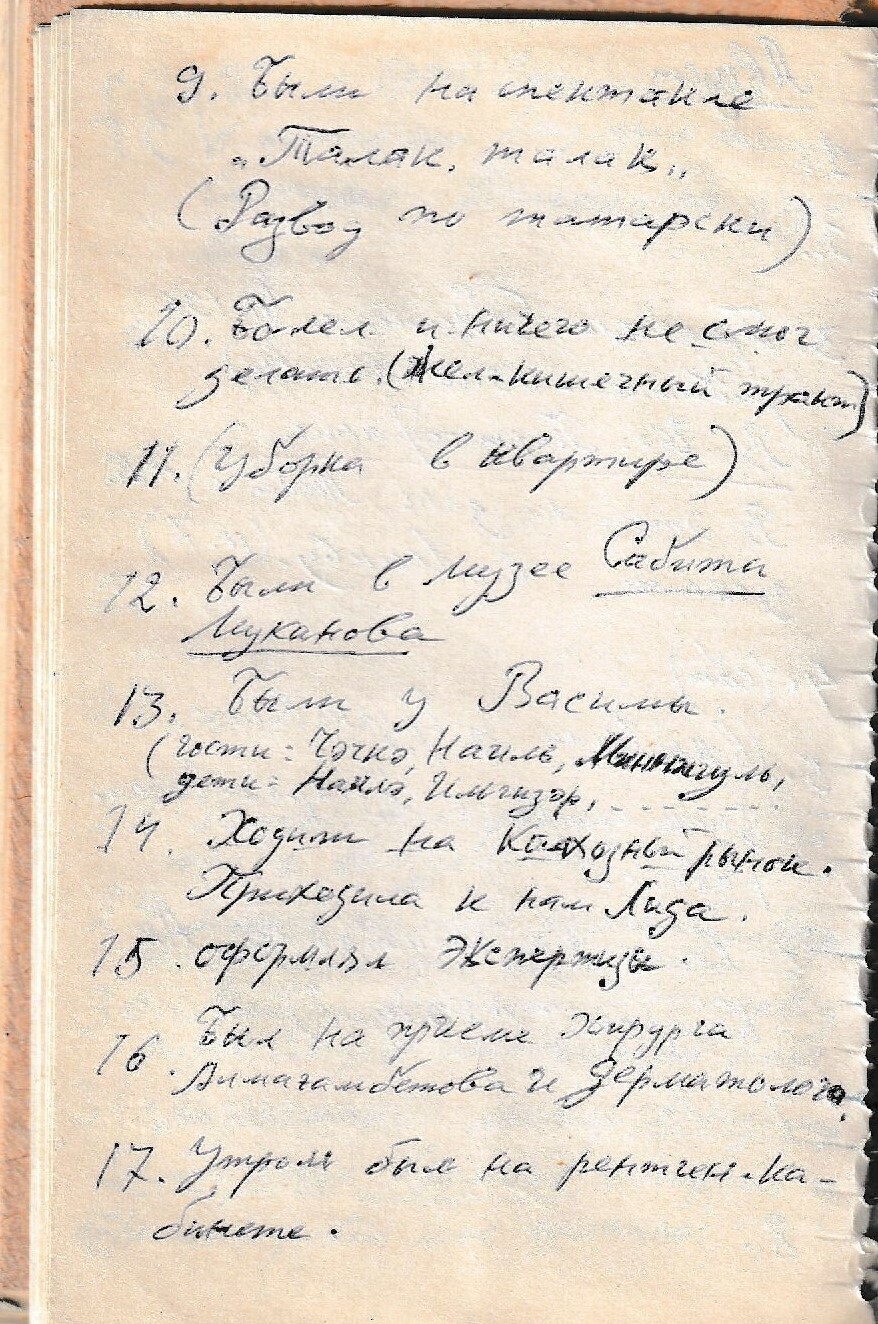 9. Были на спектакле
„Талак, талак„
(Развод по татарски)
10. Болел и ничего не смог
делать. (Жел-кишечный тракт)
11. (Уборка в квартире)
12. Были в музее Сабита
Муканова
13. Были у Васимы.
(гости: Чәчкә, Наиль, Миннигуль,
дети: Наилә, Ильгизәр, - - - - - -
14. Ходили на Колхозный рынок.
Приходила к нам Лида.
15. оформлял Экспертизы.
16. Был на приеме хирурга
Алмагамбетова и дерматолога.
17. Утром был на рентген-ка-
бинете.